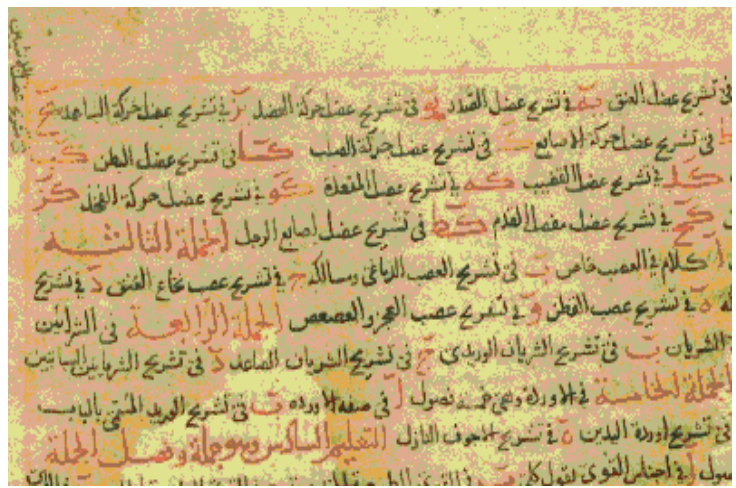 فى تشريح عضل العنق يه فى تشريح عضل الصدر يو فى تشريح عضل حركة العضد يز فى تشريح عضل حركة الساعد يح
فى تشريح عضل حركة الاصابع ك فى تشريح عضل حركة الصلب كا فى تشريح عضل البطن كب
كد فى تشريح عضل القضيب كه فى تشريح عضل المقعدة كو فى تشريح عضل حركة الفخذ كز
كح فى تشريح عضل مفصل القدم كط فى تشريح عضل اصابع الرجل الجملة الثالثه
ا كلام فى العصب خاص ب فى تشريح العصب الدماغى ومسالكه ج فى تشريح عصب نخاع العنق د فى تشريح
ه فى تشريح عصب القطن و فى تشريح عصب العجز والعصعص الجملة الرابعة فى الشرايين
الشريان ب فى تشريح الشريان الوريدى ج فى تشريح الشريان الصاعد د فى تشريح الشريانين السباتين
الجملة الخامسة فى الاوردة وهى خمسة فصول ا فى صفة الاوردة ب فى تشريح الوريد المسمى بالباب
فى تشريح اوردة اليدين ه فى تشريح الاجوف النازل التعليم السادس وهو جملة وفصل الجملة
فصول ا فى اجناس القوى بقول كلى